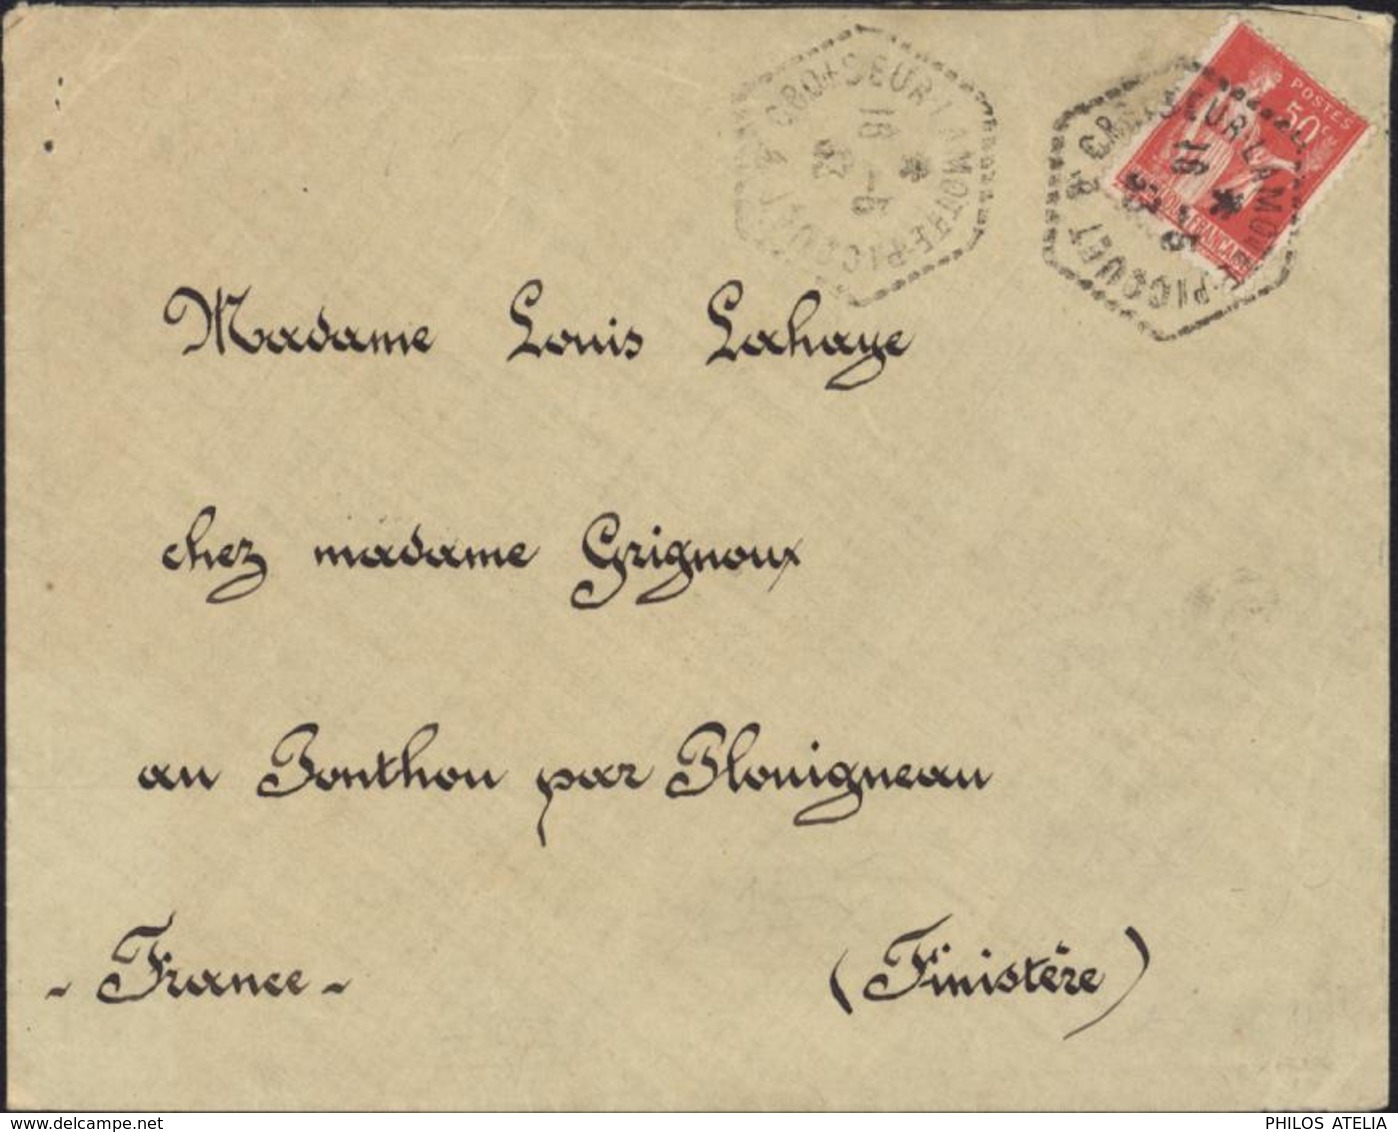 CROISEUR LAMOTTE-PICQUET
16 -5
33
POSTES
50c
CROISEUR LAMOTTE-PICQUET
16 -5
33
Madame Louis Lahaye
chez madame Grignoux
au Ponthou par Plouigneau
- France - (Finistère)
www.delcampe.net
PHILOS ATELIA